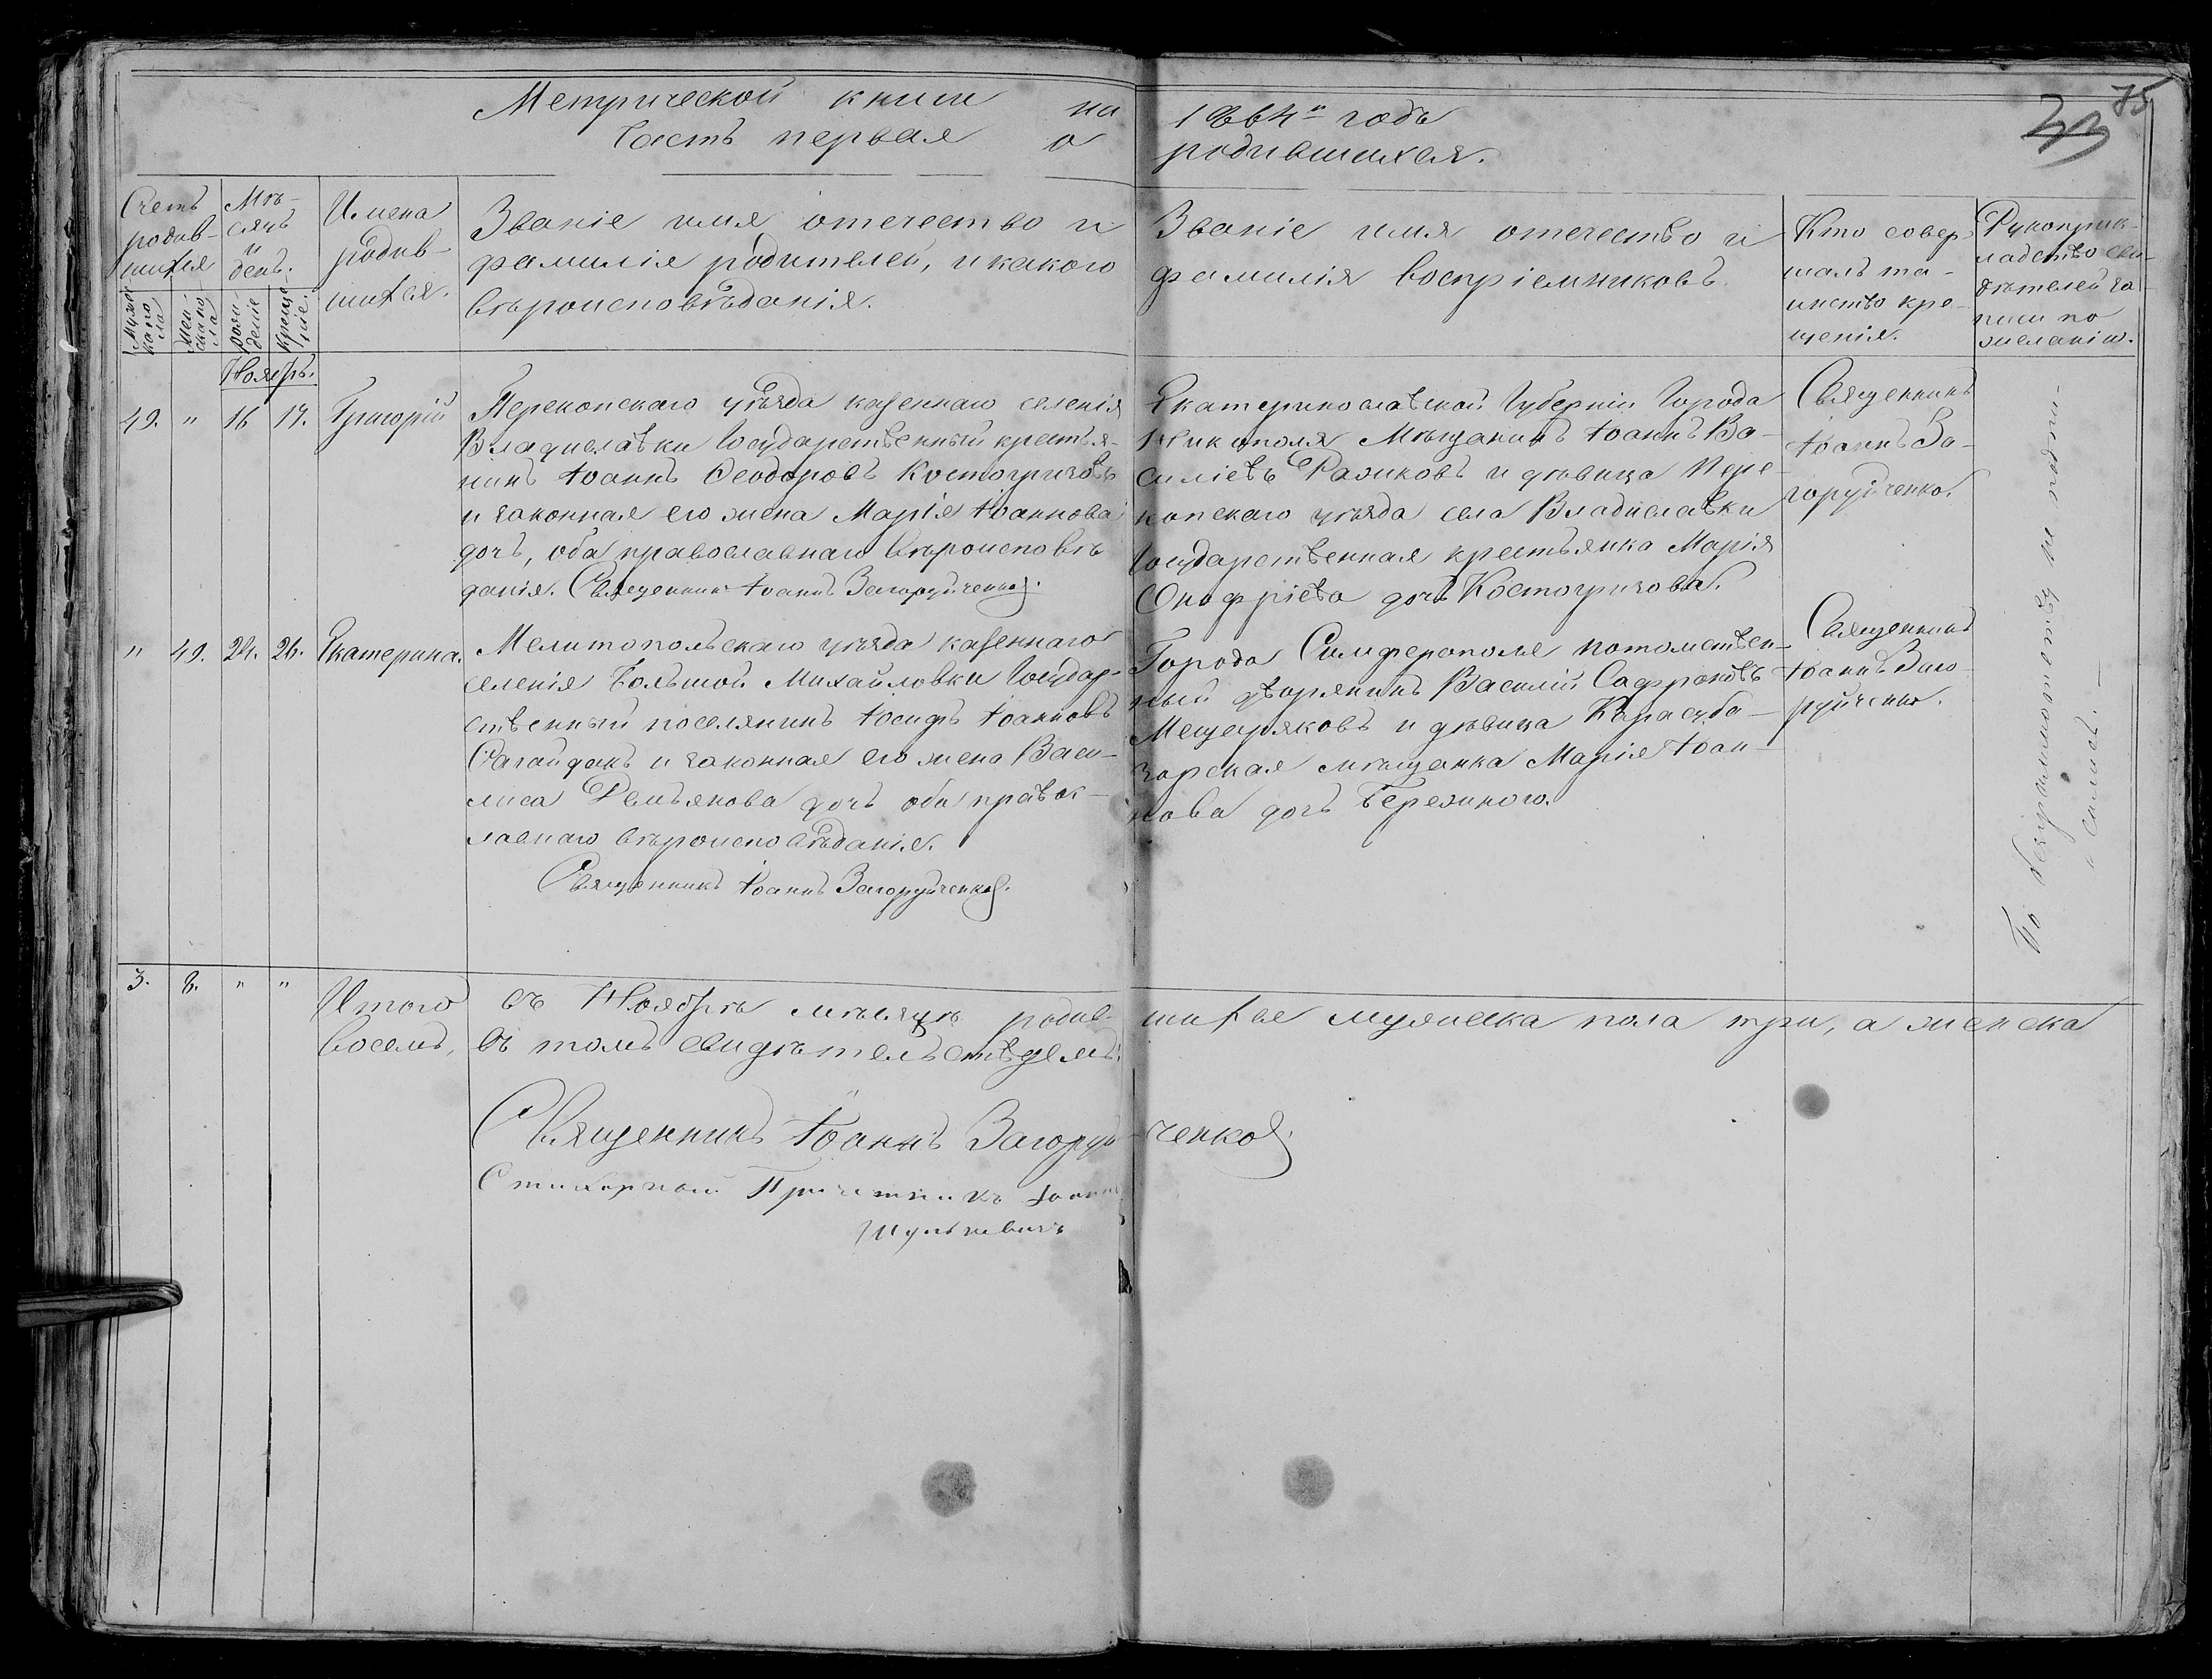 75
Метрической книги на 1864го годъ
Часть первая о родившихся.
Счетъ родив-шихся
Мѣ-сяцъ и день.
Имена родив-шихся.
Званіе имя отечество и
фамилія родителей, и какого
вѣроисповѣданія.
Званіе имя отечество и
фамилія воспріемниковъ.
Кто совер-
шалъ та-
инство кре-
щенія.
Рукоприк-
ладство сви-
дѣтелей за-
писи по
желанію.
Мужес-
ка по
ла
Жен-
ска по
ла
рож-
деніе
креще
ніе.
Ноябрь.
49. " 16 17. Григорій
Перекопскаго уѣзда казеннаго селенія
Владиславки Государственный крестья-
нинъ Іоаннъ Ѳеодоровъ Костогризовъ
и законная его жена Марія Іоаннова
дочь, оба православнаго вѣроисповѣ
данія. Священникъ Іоаннъ Загоруйченко.
Екатеринославской Губерніи Города
Никополя Мѣщанинъ Іоаннъ Ва-
силіевъ Разиковъ и дѣвица Пере-
копскаго уѣзда села Владиславки
Государственная крестьянка Марія
Онофріева дочь Костогризова.
Священникъ
Іоаннъ За-
горуйченко.
" 49. 24. 26. Екатерина.
Мелитопольскаго уѣзда казеннаго
селенія Большой Михайловки Государ-
ственный поселянинъ Іосифъ Іоанновъ
Сагайдакъ и законная его жена Васи-
лиса Демьянова дочь оба правос-
лавнаго вѣроисповѣданія.
Священникъ Іоаннъ Загоруйченко.
Города Симферополя потомствен-
ный дворянинъ Василій Сафроновъ
Мещеряковъ и дѣвица Карасуба-
зарская мѣщанка Марія Іоан-
нова дочь Бережного.
Священникъ
Іоаннъ Заго-
руйченко.
По безграмотству не подпи-
сались.
3. 8. " "
Итого въ Ноябрѣ мѣсяцѣ родив-шихся мужеска пола три, а женска
восемь, въ томъ свидѣтельствуемъ:
Священникъ Іоаннъ Загоруй-ченко
Стихарный Причетникъ Іоаннъ
Шулькевичъ